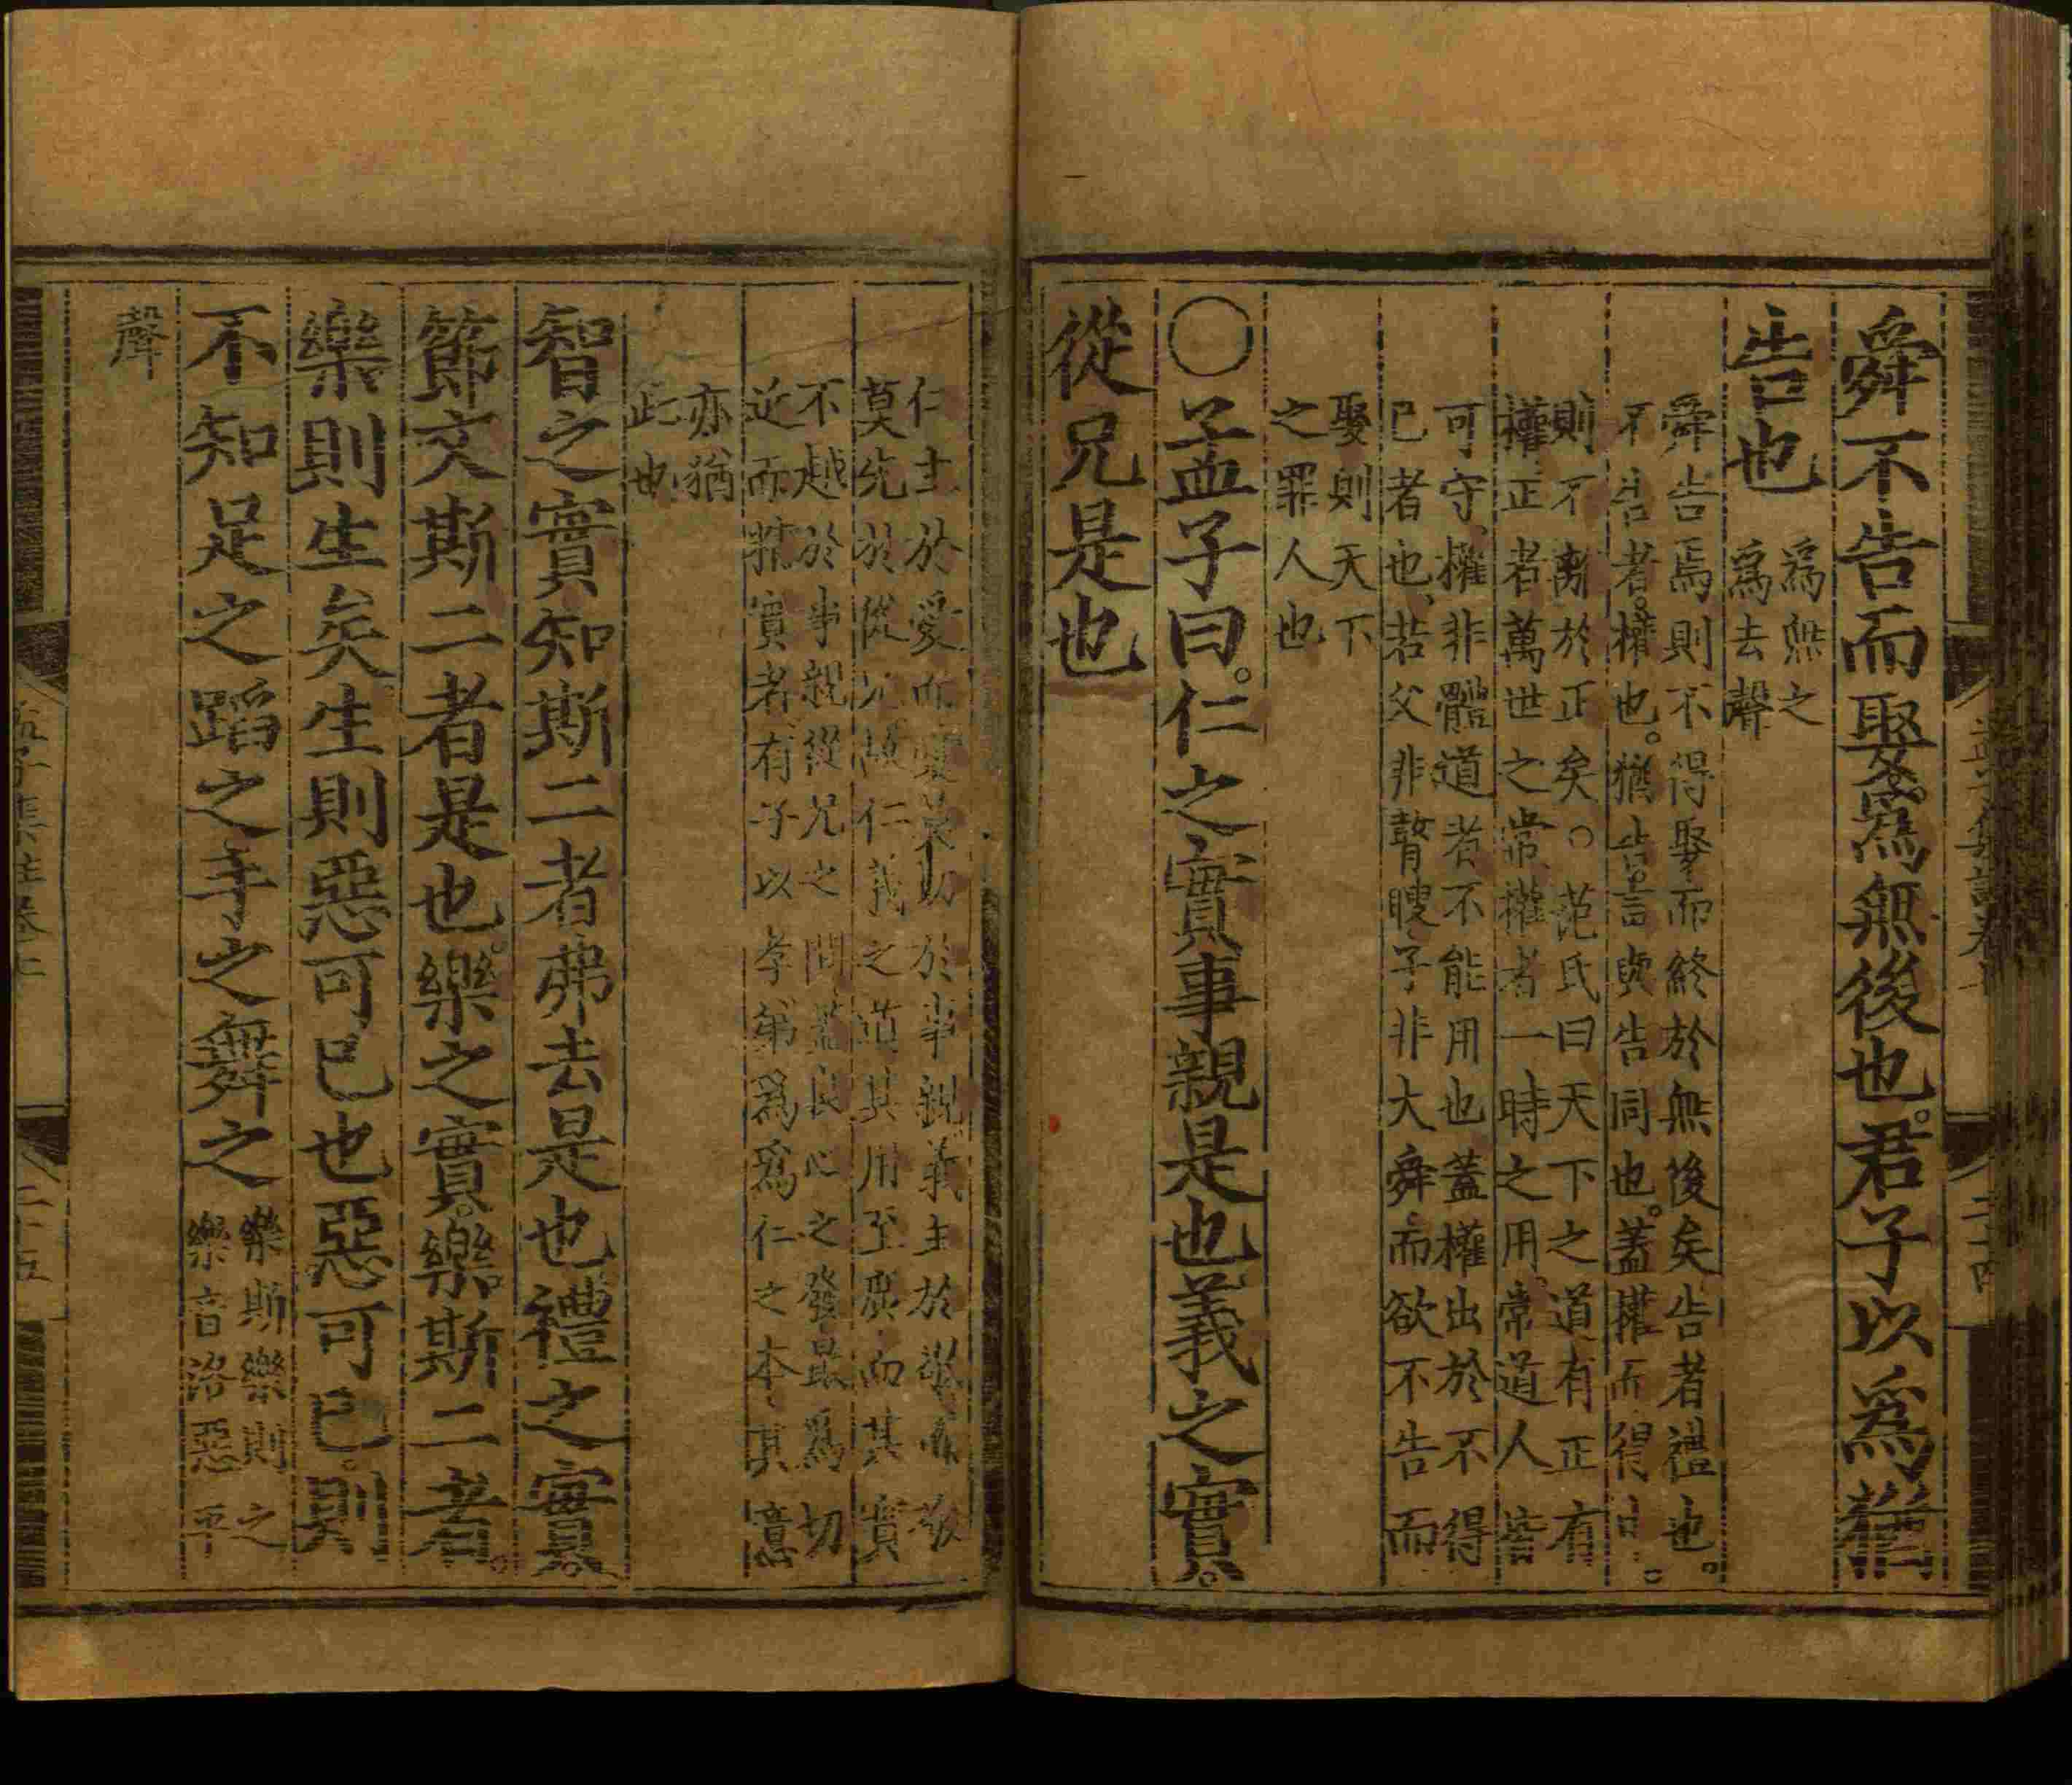 舜不告而娶。爲無後也。君子以爲猶
告也
爲無之
爲去聲
舜告焉則不得娶而終於無後矣告者禮也。
不告者。權也。猶告言與告同也。蓋權而得中。
則不離於正矣。○范氏曰天下之道有正有
權正者萬世之常權者一時之用常道人皆
可守、權非體道者不能用也蓋權出於不得
已者也、若父非瞽瞍子非大舜而欲不告而
娶則天下
之罪人也
○孟子曰。仁之實事親是也義之實。
從兄是也
仁主於愛而愛莫切於事親義主於敬而敬
莫先於從兄故仁義之道其用至廣而其實
不越於事親從兄之間蓋良心之發最爲切
近而精實者有子以孝弟爲爲仁之本其意
亦猶
此也
智之實知斯二者弗去是也禮之實。
節文斯二者是也。樂之實。樂斯二者。
樂則生矣生則惡可已也惡可已。則
不知足之蹈之手之舞之
樂斯樂則之
樂音洛惡平
聲
孟子集註卷七
二十五